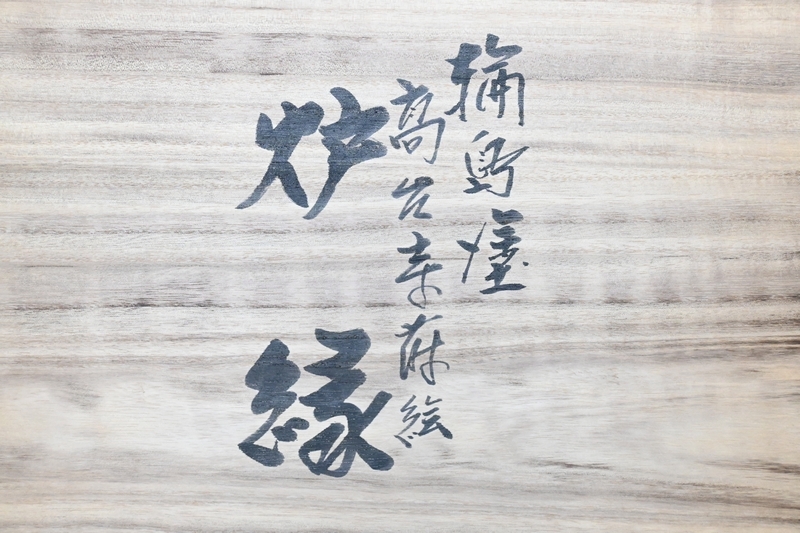 輪島塗
高台寺蒔絵
炉縁